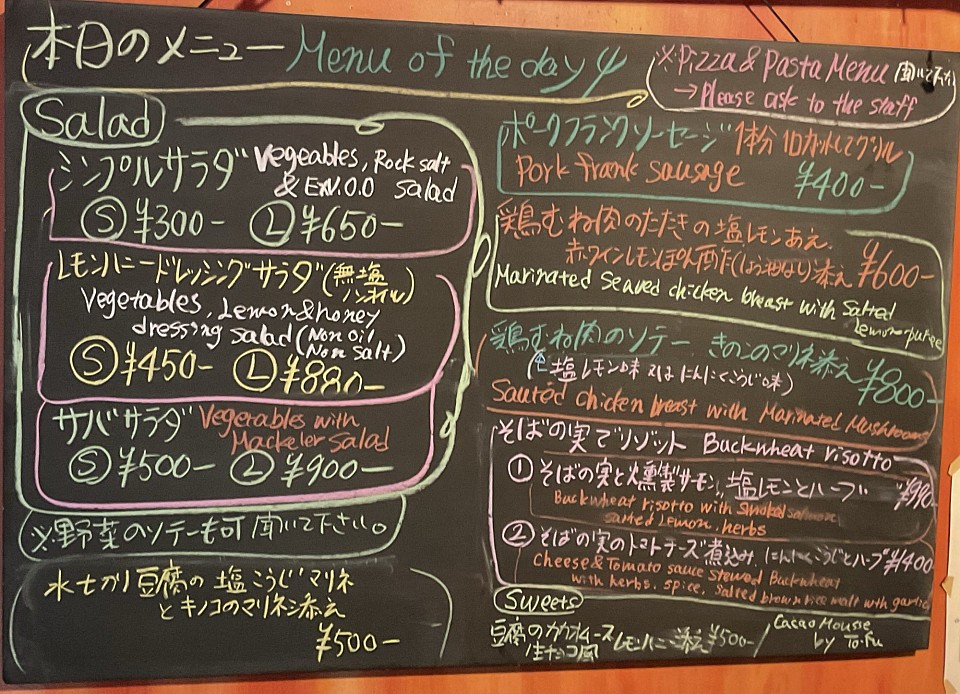 本日のメニュー Menu of the day
※Pizza & Pasta Menu 聞いて下さい
→Please ask to the staff
Salad
シンプルサラダ Vegeables, Rock salt
& EXV.O.O salad
Ⓢ ¥300- Ⓛ ¥650-
レモンハニードレッシングサラダ(無塩
ノンオイル)
Vegetables, Lemon & honey
dressing salad (Non oil
Non salt)
Ⓢ ¥450- Ⓛ ¥880-
サバサラダ Vegetables with
Mackeler salad
Ⓢ ¥500- Ⓛ ¥900-
※野菜のソテーも可 聞いて下さい。
水切り豆腐の塩こうじマリネ
とキノコのマリネ添え
¥500-
ポークフランクソーセージ 1本分 10カットしてグリル
Pork frank sausage ¥400-
鶏むね肉のたたきの塩レモンあえ、
赤ワインレモンぽん酢だ(しょうゆなし)添え ¥600-
Marinated Seared chicken breast with Salted
lemon puree
鶏むね肉のソテー きのこのマリネ添え ¥800-
(塩レモン味 又は にんにくこうじ味)
Sauted chicken breast with Marinated Mushrooms
そばの実でリゾット Buckwheat risotto
① そばの実と燻製サーモン、塩レモンとハーブ ¥990-
Buckwheat risotto with smoked salmon
salted lemon, herbs
② そばの実のトマトチーズ煮込み、にんにくこうじとハーブ ¥1400
Cheese & Tomato sauce stewed Buckwheat
with herbs, spice, Salted brown rice malt with garlic
Sweets
豆腐のカカオムース レモンハニー添え ¥500-
生チョコ風
Cacao Mouse
by To-Fu